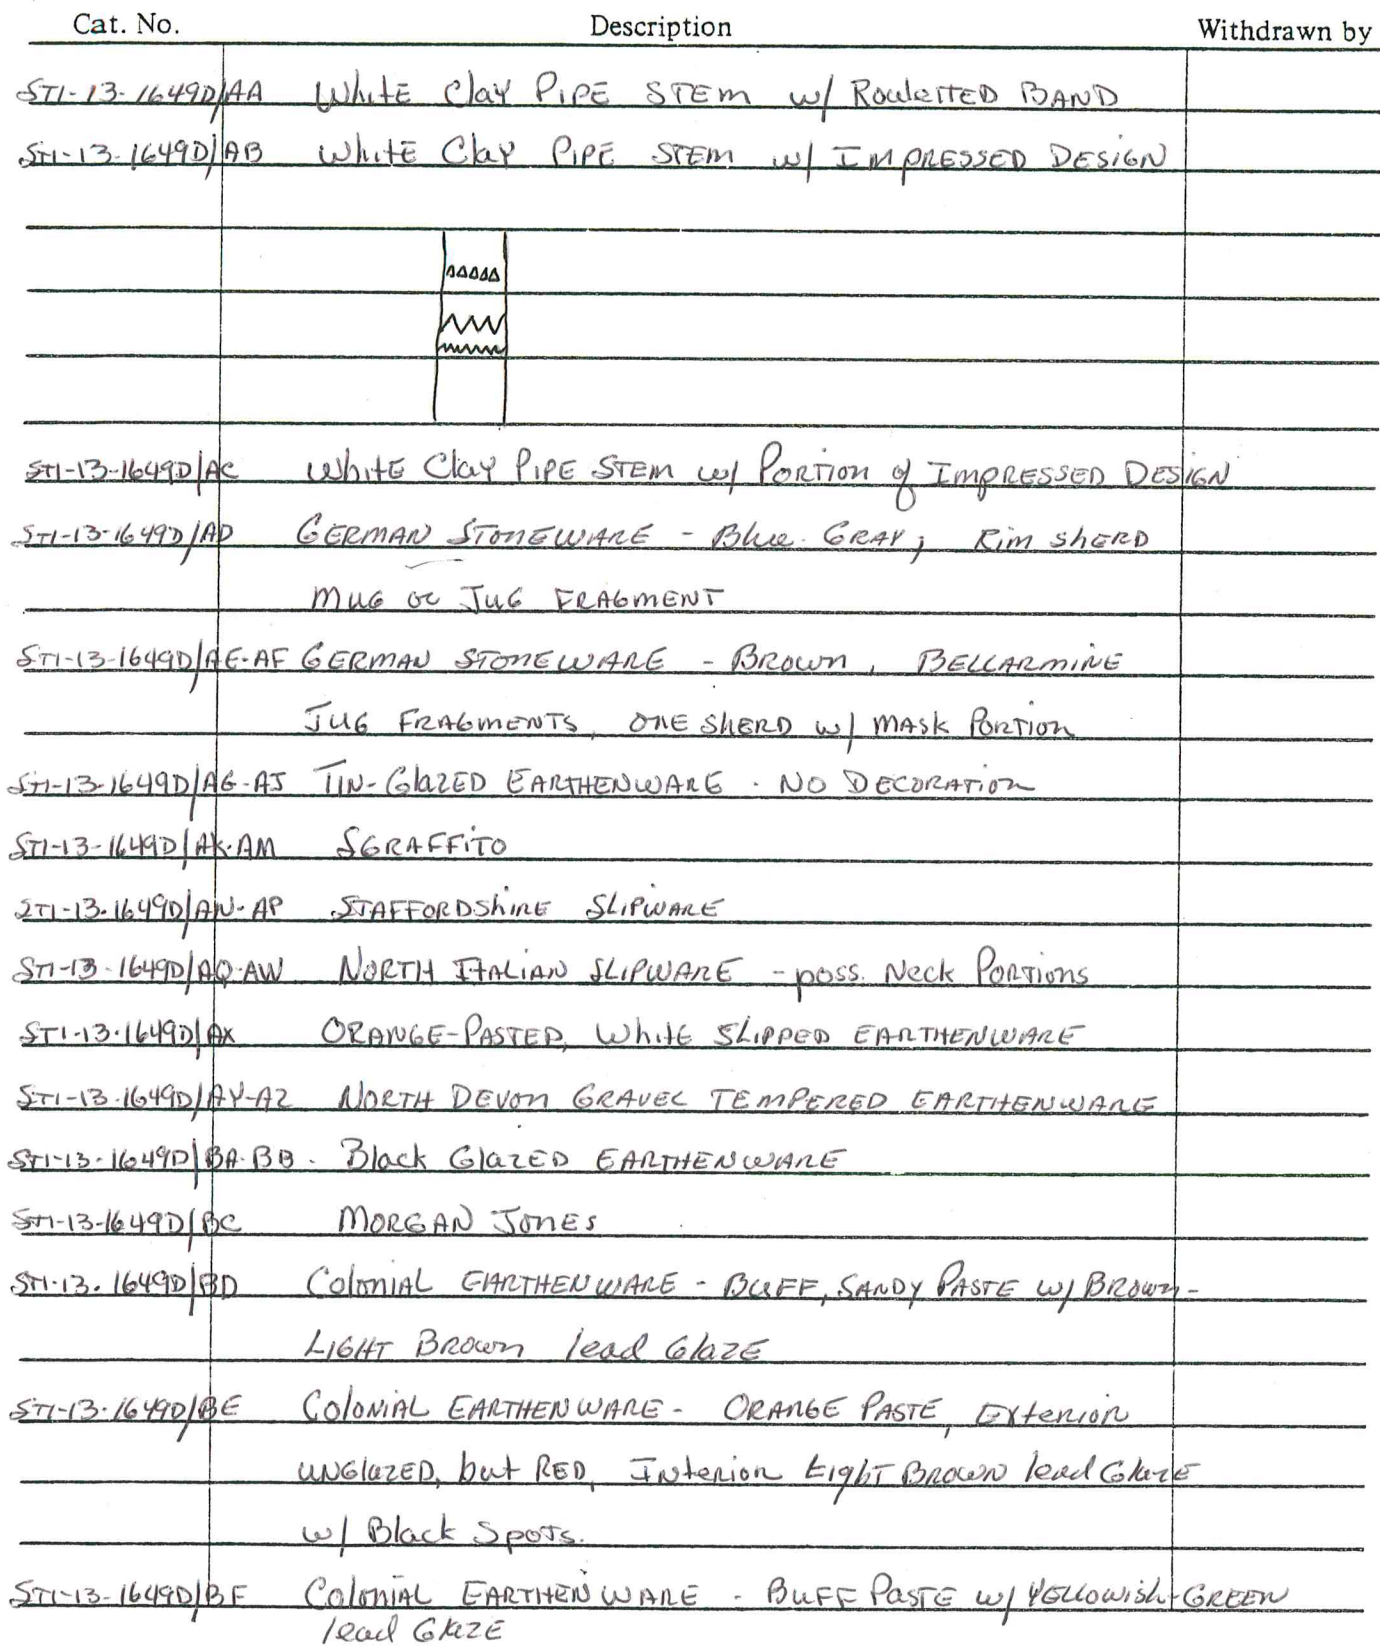 Cat. No. Description Withdrawn by
ST1-13-1649D/AA White Clay PIPE STEM w/ RouleTTED BAND
ST1-13-1649D/AB White Clay PIPE STEM w/ IMPRESSED DESIGN
ST1-13-1649D/AC White Clay PIPE STEM w/ PORTION of IMPRESSED DESIGN
ST1-13-1649D/AD GERMAN STONEWARE - Blue-GRAY; Rim SHERD
MUG or JUG FRAGMENT
ST1-13-1649D/AE-AF GERMAN STONEWARE - BROWN, BELLARMINE
JUG FRAGMENTS, ONE SHERD w/ MASK PORTION
ST1-13-1649D/AG-AJ TIN-GlaZED EARTHENWARE - NO DECORATION
ST1-13-1649D/AK-AM SGRAFFITO
ST1-13-1649D/AN-AP STAFFORDShiRE SLIPWARE
ST1-13-1649D/AQ-AW NORTH ITALIAN SLIPWARE - poss. Neck PORTIONS
ST1-13-1649D/AX ORANGE-PASTED, White SLIPPED EARTHENWARE
ST1-13-1649D/AY-AZ NORTH DEVON GRAVEL TEMPERED EARTHENWARE
ST1-13-1649D/BA-BB. Black GlaZED EARTHENWARE
ST1-13-1649D/BC MORGAN JONES
ST1-13-1649D/BD Colonial EARTHENWARE - BUFF, SANDY PASTE w/ BROWN-
LIGHT BROWN lead GlaZE
ST1-13-1649D/BE Colonial EARTHENWARE - ORANGE PASTE, Exterior
UNGlaZED, but RED, Interior Light BROWN lead GlaZE
w/ Black Spots.
ST1-13-1649D/BF Colonial EARTHENWARE - BUFF PASTE w/ YEllowish-GREEN
lead GlaZE